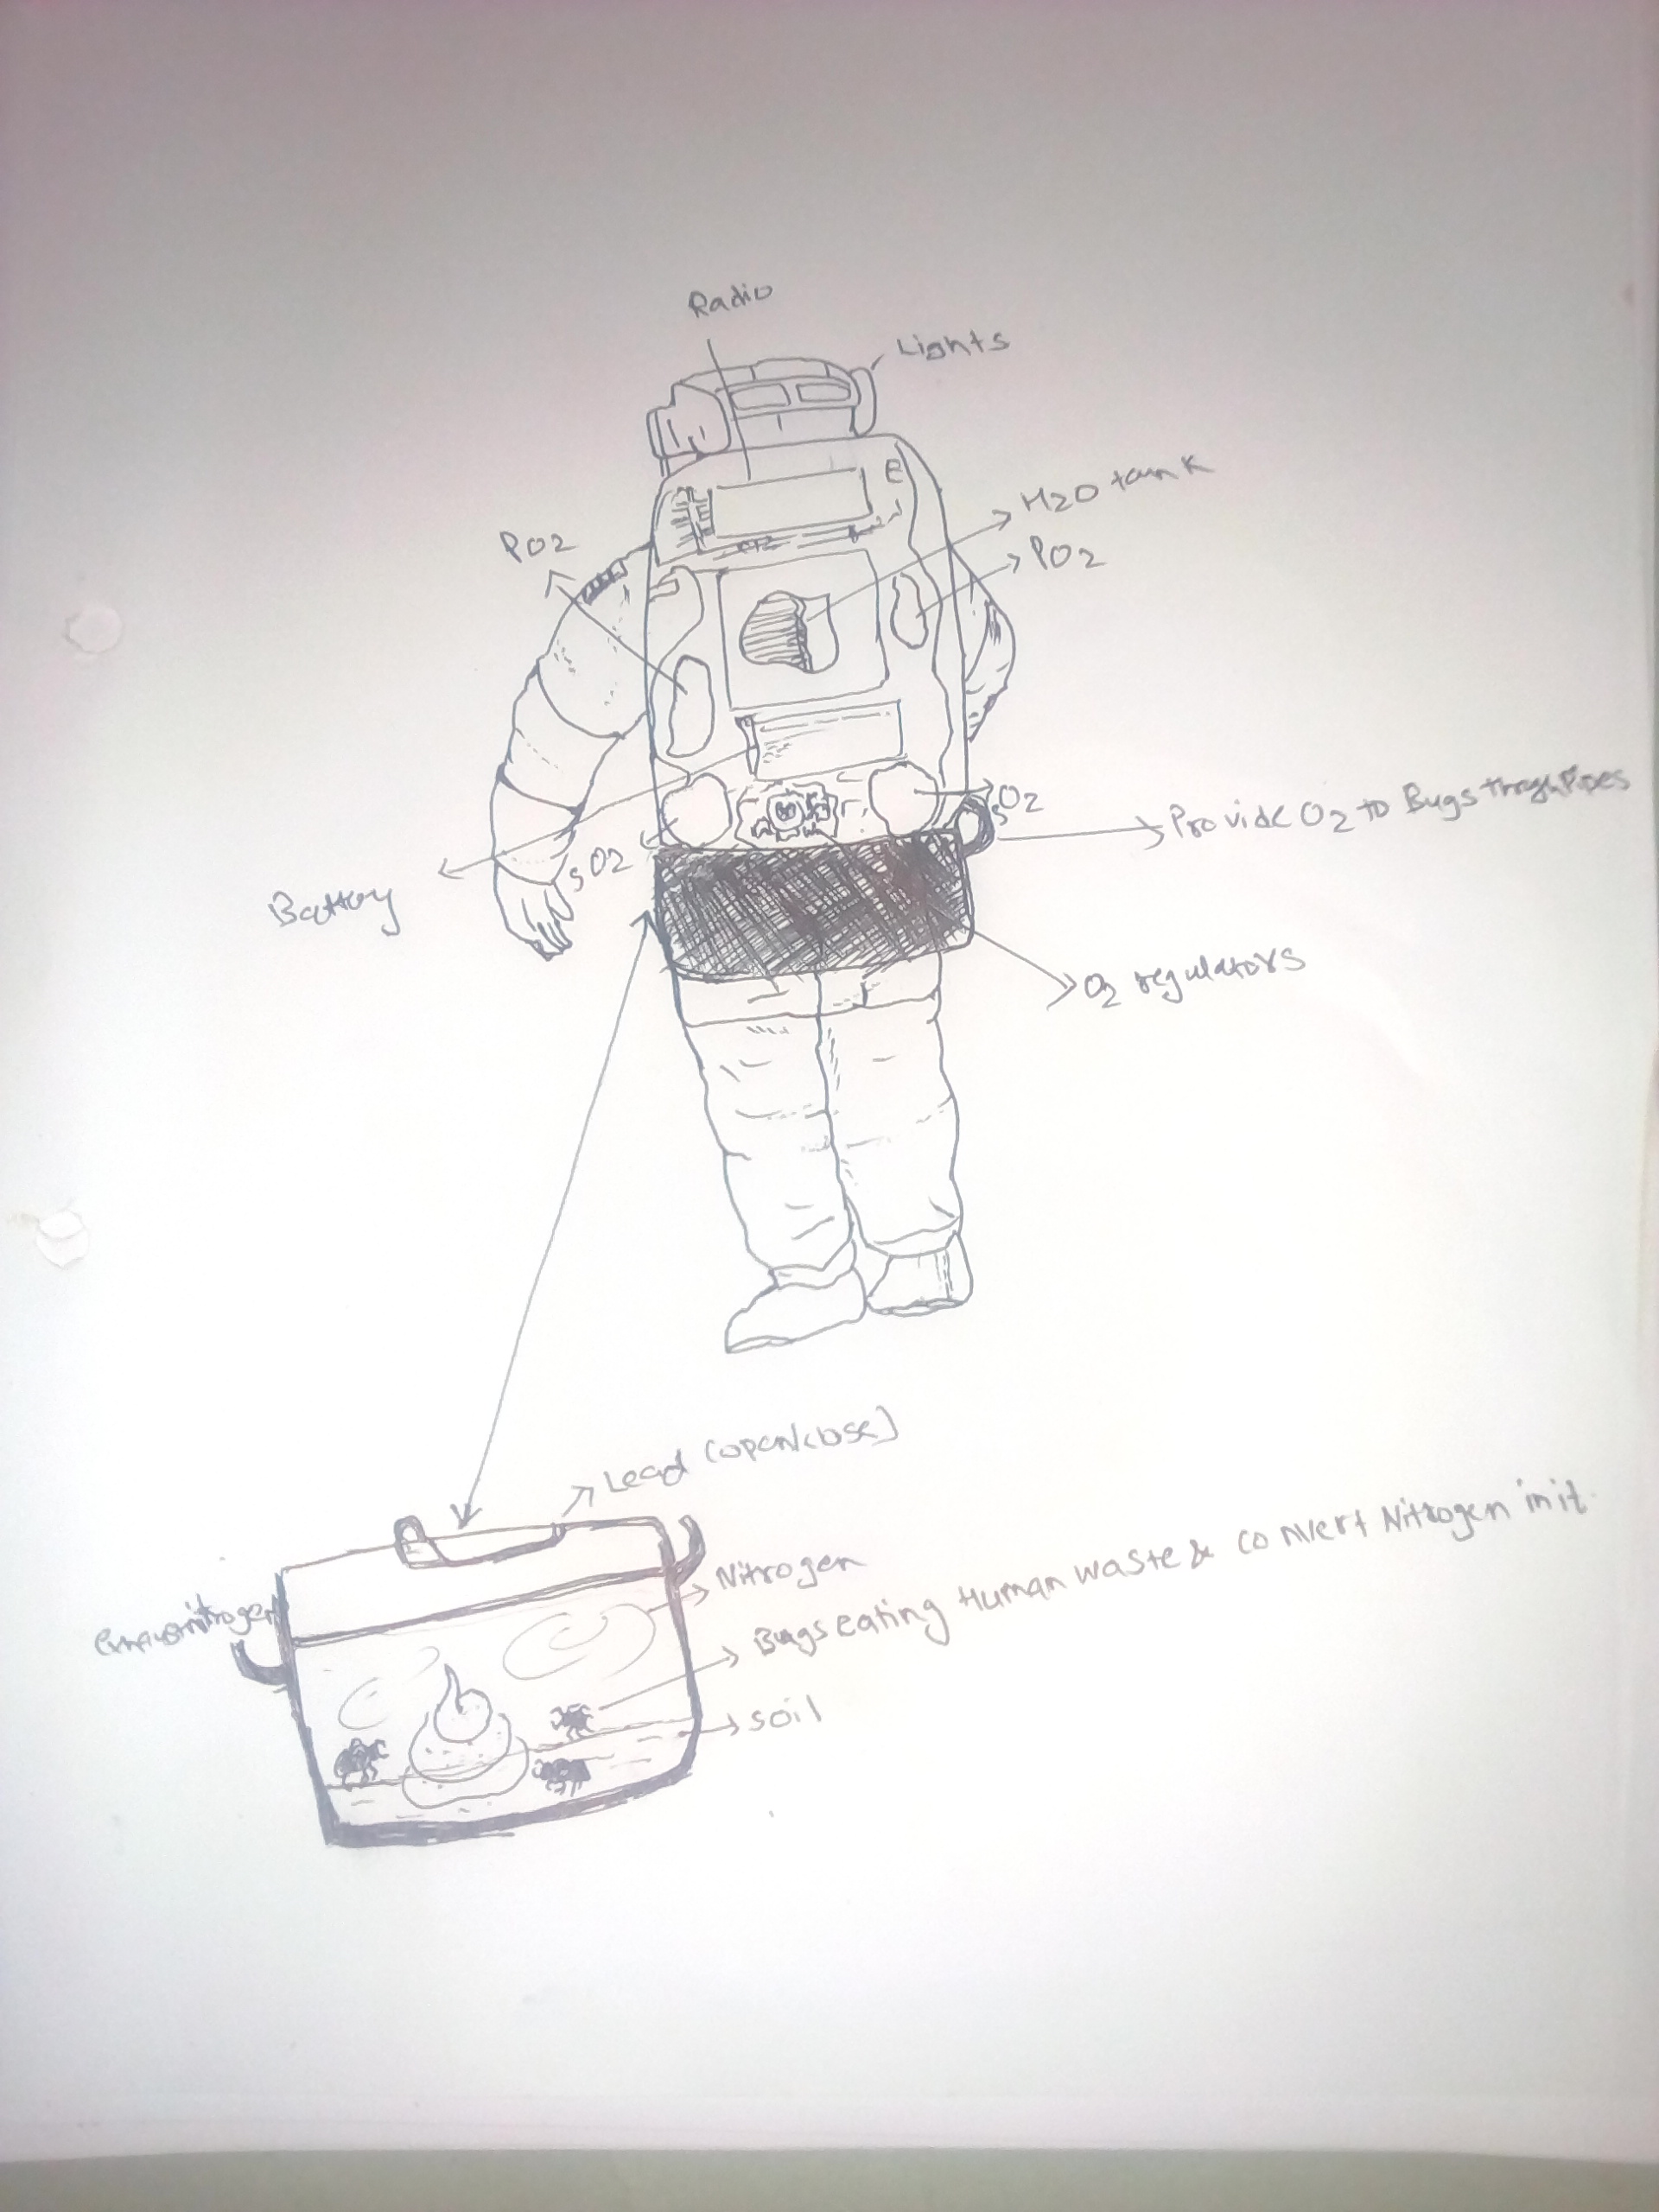 Radio
Lights
H2O tank
PO2
PO2
E
SO2
SO2
Provide O2 to Bugs through Pipes
Battery
O2 regulators
Lead (open/close)
Nitrogen
nitrogen
Bugs eating Human waste & convert Nitrogen in it.
soil